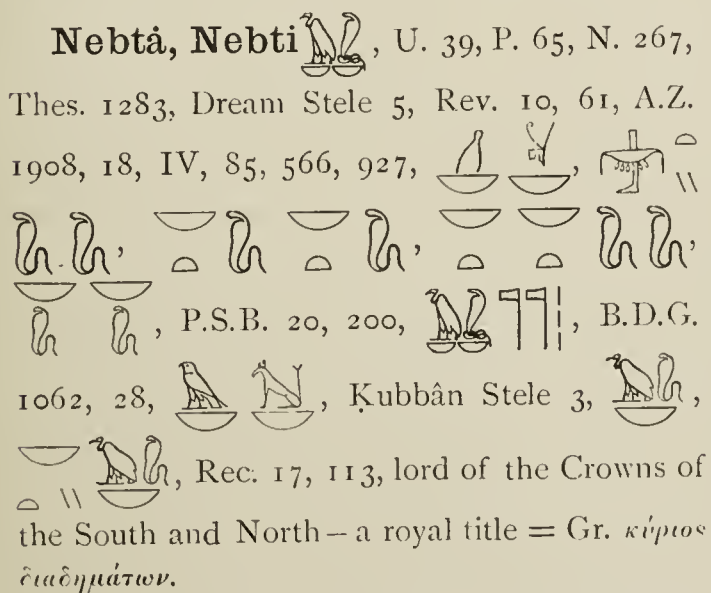 Nebtȧ, Nebti 𓅒, U. 39, P. 65, N. 267,
Thes. 1283, Dream Stele 5, Rev. 10, 61, A.Z.
1908, 18, IV, 85, 566, 927, 𓋒𓋕, 𓏏𓏭
𓆓𓆓, 𓎟𓏏𓆓𓎟𓏏𓆓, 𓎟𓏏𓎟𓏏𓆓𓆓,
𓎟𓆓𓎟𓆓, P.S.B. 20, 200, 𓅒𓊹𓊹, B.D.G.
1062, 28, Ḳubbân Stele 3, 𓅒,
𓎟𓏏𓏭𓅒, Rec. 17, 113, lord of the Crowns of
the South and North – a royal title = Gr. κύριος
διαδημάτων.